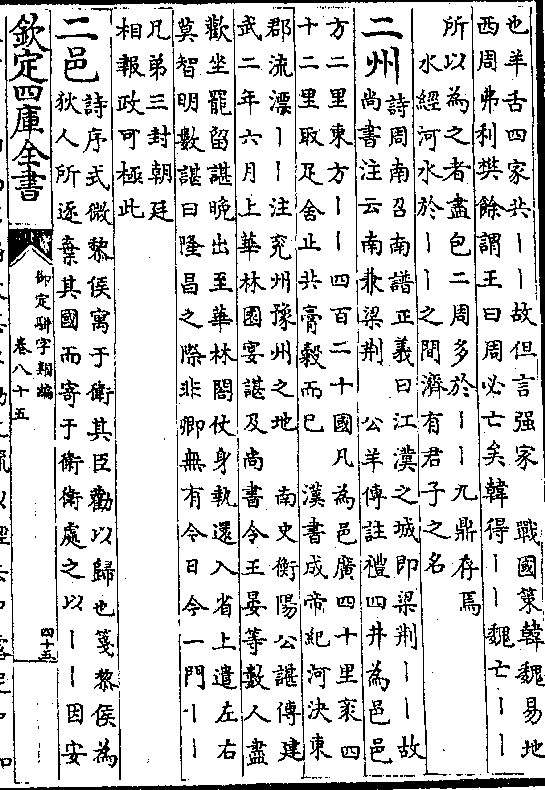 也羊舌四家共丨丨故但言强家 戰國策韓魏易地
西周弗利樊餘謂王曰周必亡矣韓得丨丨魏亡丨丨
所以為之者盡包二周多於丨丨九鼎存焉
水經河水於丨丨之間濟有君子之名
二州 詩周南召南譜正義曰江漢之城即梁荆丨丨故
尚書注云南兼梁荆 公羊傳註禮四井為邑邑
方二里東方丨丨四百二十國凡為邑廣四十里袤四
十二里取足舍止共膏穀而已 漢書成帝紀河決東
郡流漂丨丨注兖州豫州之地 南史衡陽公諶傳建
武二年六月上華林園宴諶及尚書令王晏等數人盡
歡坐罷留諶晚出至華林閣仗身執還入省上遣左右
莫智明數諶曰隆昌之際非卿無有今日今一門丨丨
兄弟三封朝廷
相報政可極此
二邑 詩序式微黎侯寓于衛其臣勸以歸也箋黎侯為
狄人所逐棄其國而寄于衛衛處之以丨丨因安
欽定四庫全書
御定駢字類編
卷八十五
四十五